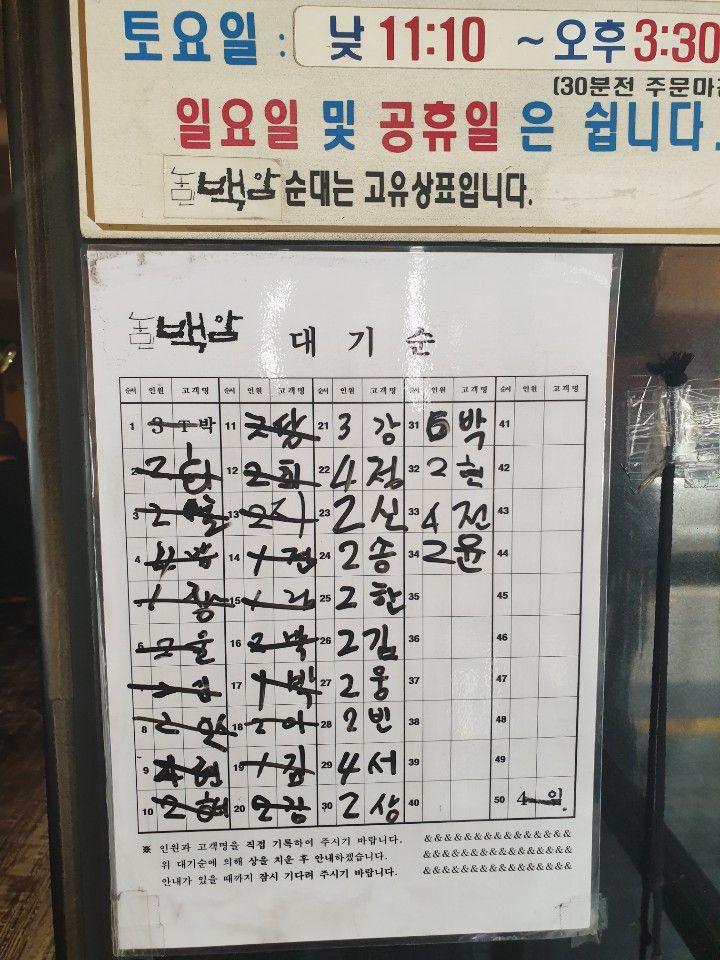 토요일 : 낮 11:10 ~ 오후 3:30
(30분전 주문마감
일요일 및 공휴일 은 쉽니다.
농민백암 순대는 고유상표입니다.
농민백암 대 기 순
순서 인원 고객명 순서 인원 고객명 순서 인원 고객명 순서 인원 고객명 순서 인원 고객명
1 3 박 11 21 3 강 31 6 박 41
2 2 12 2 최 22 4 정 32 2 현 42
3 2 13 2 지 23 2 신 33 4 전 43
4 14 1 24 2 송 34 2 윤 44
1 장 15 1 25 2 한 35 45
6 2 율 16 2 박 26 2 김 36 46
17 1 박 27 2 웅 37 47
8 2 18 2 이 28 2 빈 38 48
9 현 19 1 김 29 4 서 39 49
10 2 20 2 강 30 2 상 40 50 4 일.
※ 인원과 고객명을 직접 기록하여 주시기 바랍니다. &&&&&&&&&&&&&&&
위 대기순에 의해 상을 치운 후 안내하겠습니다. &&&&&&&&&&&&&&&
안내가 있을 때까지 잠시 기다려 주시기 바랍니다. &&&&&&&&&&&&&&&